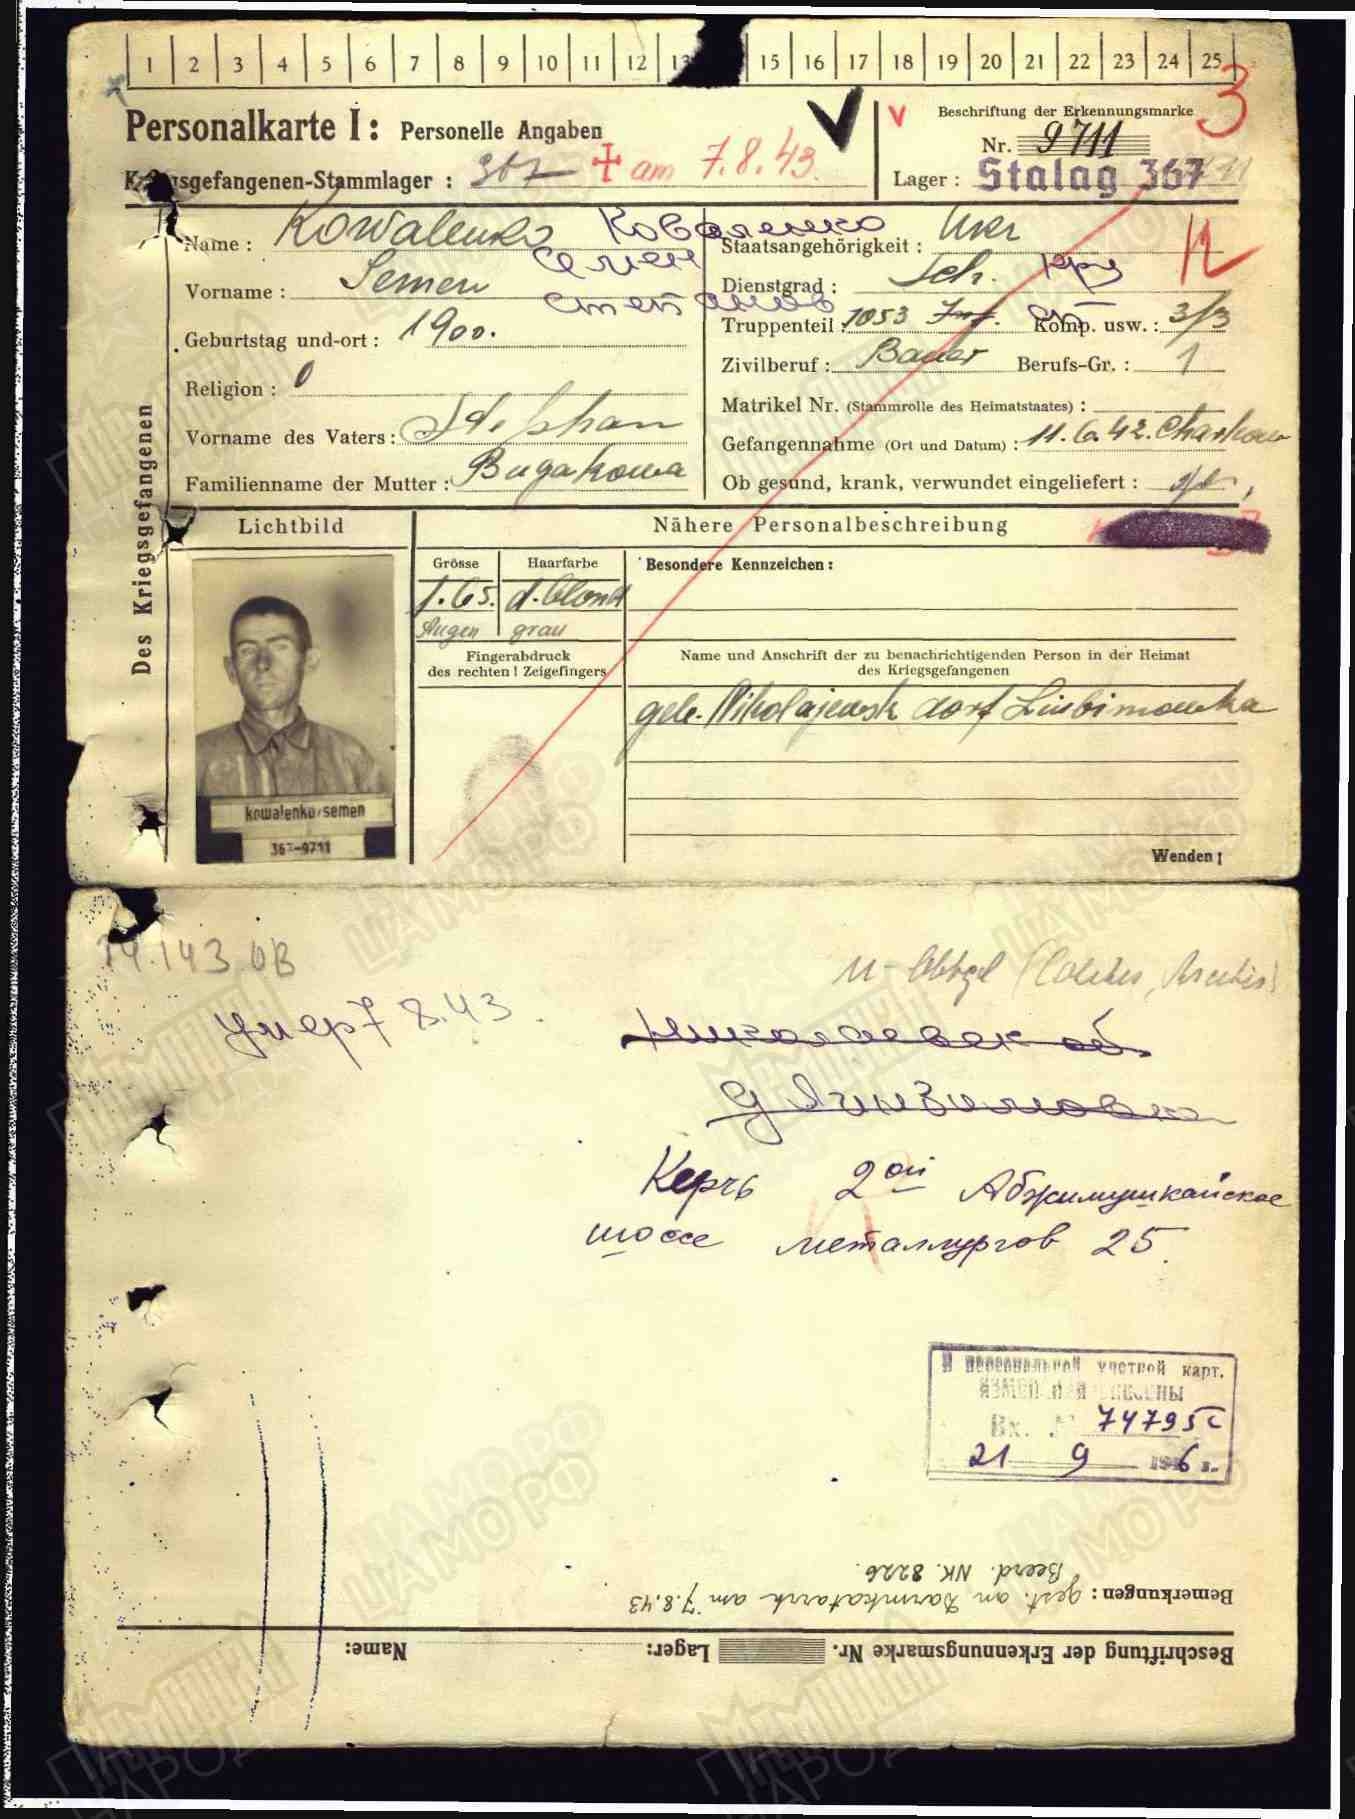 1 2 3 4 5 6 7 8 9 10 11 12 13 15 16 17 18 19 20 21 22 23 24 25
3
Personalkarte I: Personelle Angaben
Kriegsgefangenen-Stammlager : 367 + am 7.8.43.
V
Beschriftung der Erkennungsmarke
Nr. 9711
Lager : Stalag 367
Des Kriegsgefangenen
Name : Kowalenko Коваленко
Vorname : Semen Семен
Степанов
Geburtstag und-ort : 1900.
Religion : O
Vorname des Vaters : Stephan
Familienname der Mutter : Bugakowa
Staatsangehörigkeit : Ukr
Dienstgrad : Sch. кр
Truppenteil : 1053 Inf. сп Komp. usw. : 3/3
Zivilberuf : Bauer Berufs-Gr. : 1
Matrikel Nr. (Stammrolle des Heimatstaates) :
Gefangennahme (Ort und Datum) : 11.6.42. Charkow
Ob gesund, krank, verwundet eingeliefert :
Lichtbild
kowalenko, semen
367-9711
Nähere Personalbeschreibung
Grösse
1.65.
Haarfarbe
d. blond
Augen grau
Fingerabdruck
des rechten ! Zeigefingers
Besondere Kennzeichen :
Name und Anschrift der zu benachrichtigenden Person in der Heimat
des Kriegsgefangenen
geb. Nikolajewsk dorf Liubimowka
Wenden !
143 OB
умер 7 8.43.
Николаевск об.
д
Керчь 2ой Аджимушкайское
шоссе металлургов 25.
В персональной учетной карт.
ИЗМЕНЕНИЯ ВНЕСЕНЫ
Вх. № 74795с
21 9 1946 г.
Beschriftung der Erkennungsmarke Nr. Lager: Name:
Bemerkungen: gest. an Darmkatarrh am 7.8.43
Beerd. NK. 8226.